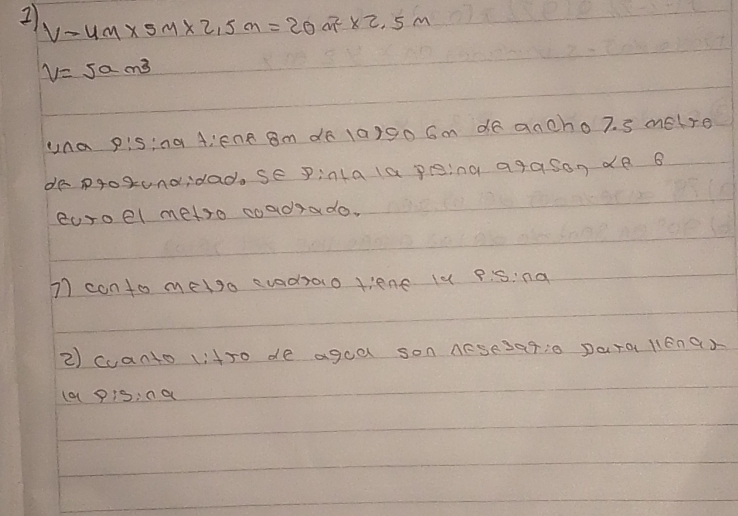 1) V = 4m x 5m x 2,5m = 20 m² x 2,5 m
V = 50 m3
una pisina tiene 8m de largo 6m de ancho 7.5 metro
de profundidad. se pinta la pisina arason de 6
euro el metro coadrado.
1) canto metro cuadrao tiene la pisina
2) cuanto litro de agua son nesesario para llenar
la pisina